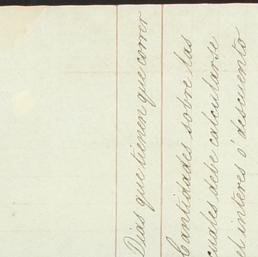 Dias que tienen que correr
Cantidades sobre las
cuales debe calcularse
el interes ó descuento